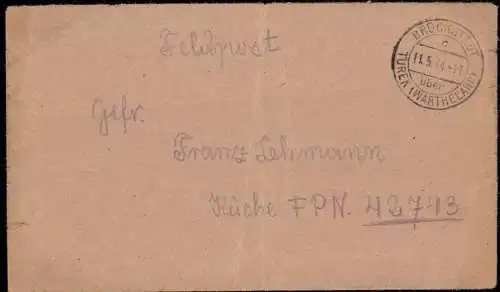 Feldpost
BRÜCKSTÄDT
a
11.5.44
über
TUREK (WARTHELAND)
Gefr.
Franz Lehmann
Küche FPN. 42743